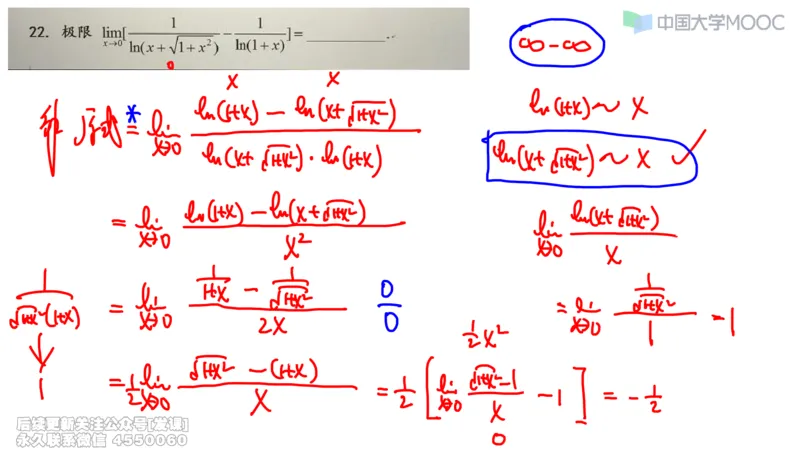 中国大学MOOC
22. 极限 lim_{x→0}[1/ln(x+√(1+x²)) − 1/ln(1+x)] = ______.
∞−∞
0
x x
解 原式 *= lim_{x→0} (ln(1+x) − ln(x+√(1+x²)))/(ln(x+√(1+x²))·ln(1+x))
ln(1+x) ~ x
ln(x+√(1+x²)) ~ x ✓
= lim_{x→0} (ln(1+x) − ln(x+√(1+x²)))/x²
lim_{x→0} ln(x+√(1+x²))/x
1/(√(1+x²)(1+x))
↓
1
= lim_{x→0} (1/(1+x) − 1/√(1+x²))/(2x) 0/0
= lim_{x→0} (1/√(1+x²))/1 = 1
½x²
= ½ lim_{x→0} (√(1+x²) − (1+x))/x = ½[lim_{x→0} (√(1+x²)−1)/x − 1] = −½
0
后续更新关注公众号[拿课]
永久联系微信 4550060